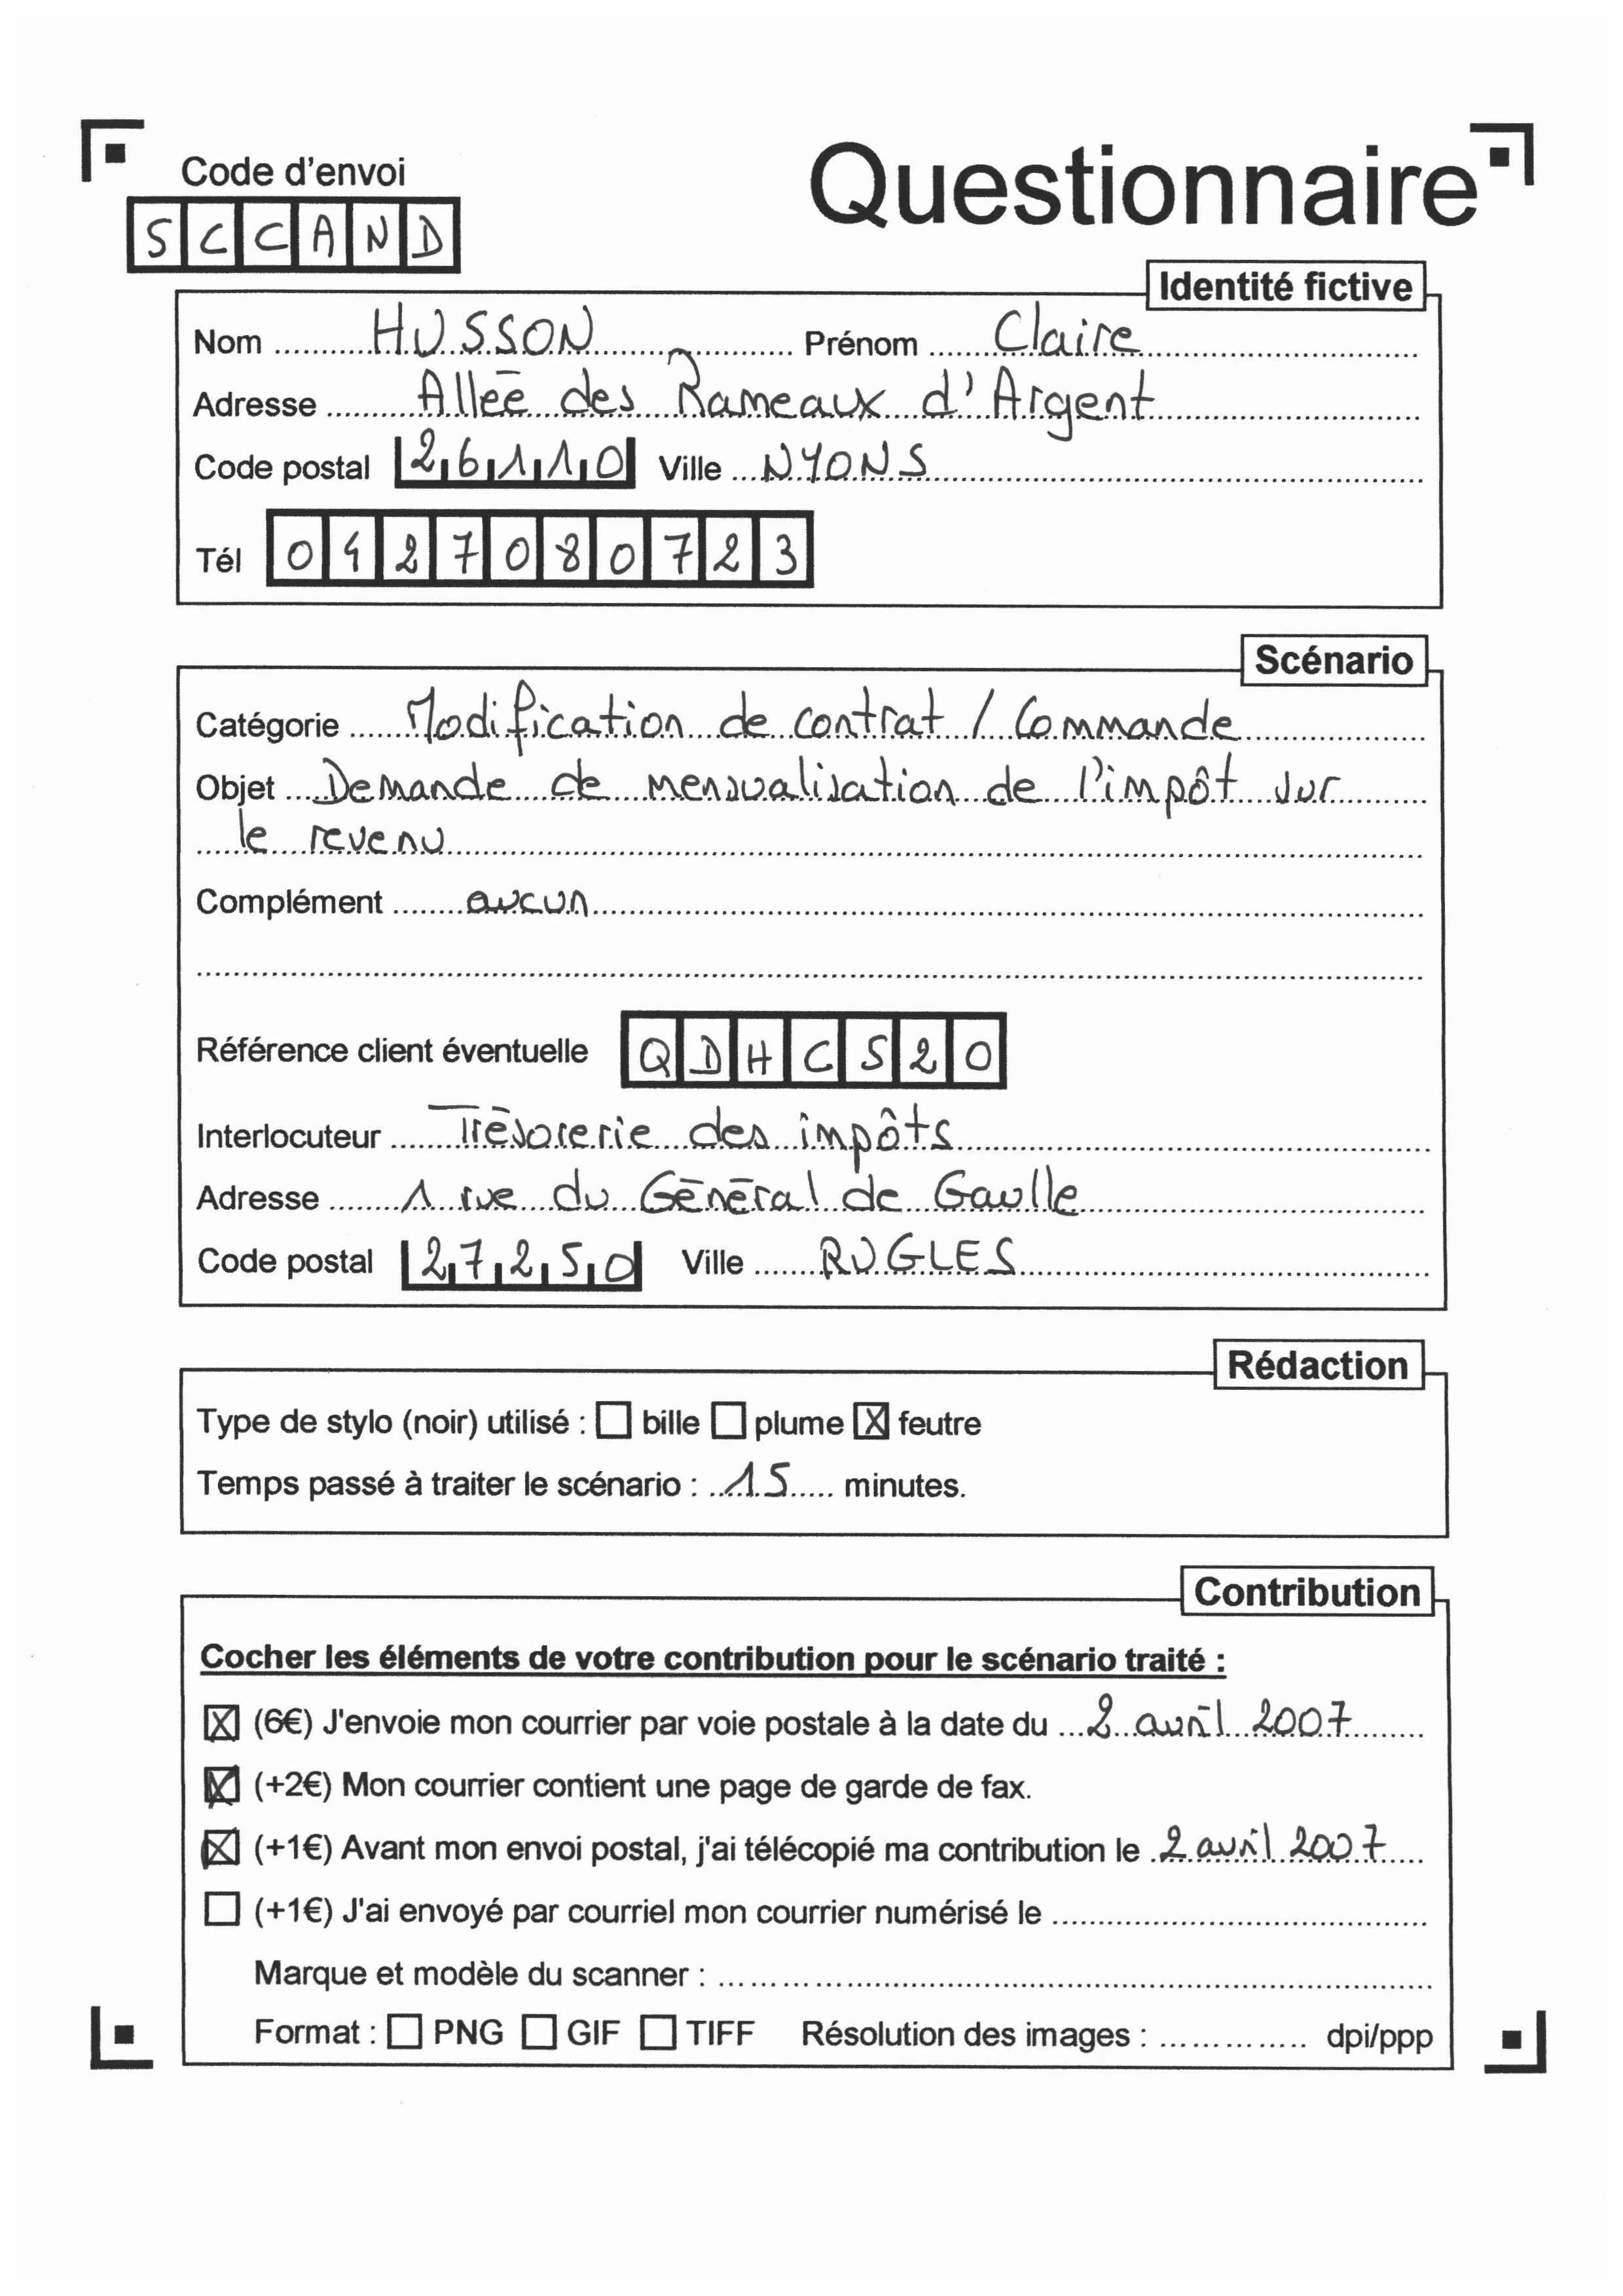 Code d'envoi
Questionnaire
SCCAND
Identité fictive
Nom HUSSON Prénom Claire
Adresse Allée des Rameaux d'Argent
Code postal 26110 Ville NYONS
Tél 0427080723
Scénario
Catégorie Modification de contrat / Commande
Objet Demande de mensualisation de l'impôt sur
le revenu
Complément aucun
Référence client éventuelle QDHCS20
Interlocuteur Trésorerie des impôts
Adresse 1 rue du Général de Gaulle
Code postal 27250 Ville RUGLES
Rédaction
Type de stylo (noir) utilisé : ☐ bille ☐ plume ☒ feutre
Temps passé à traiter le scénario : 15 minutes.
Contribution
Cocher les éléments de votre contribution pour le scénario traité :
☒ (6€) J'envoie mon courrier par voie postale à la date du 2 avril 2007
☒ (+2€) Mon courrier contient une page de garde de fax.
☒ (+1€) Avant mon envoi postal, j'ai télécopié ma contribution le 2 avril 2007
☐ (+1€) J'ai envoyé par courriel mon courrier numérisé le
Marque et modèle du scanner :
Format : ☐ PNG ☐ GIF ☐ TIFF Résolution des images : dpi/ppp